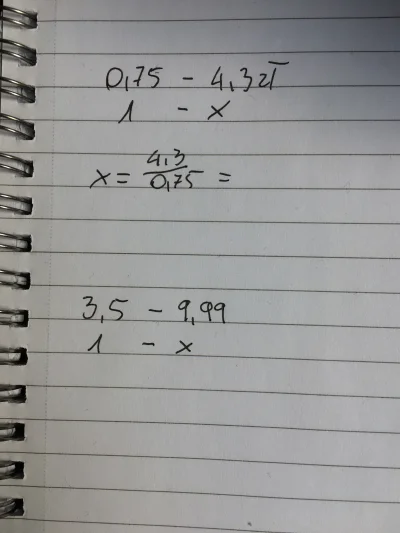 0,75 - 4,3zł
1 - x
x = 4,3/0,75 =
3,5 - 9,99
1 - x